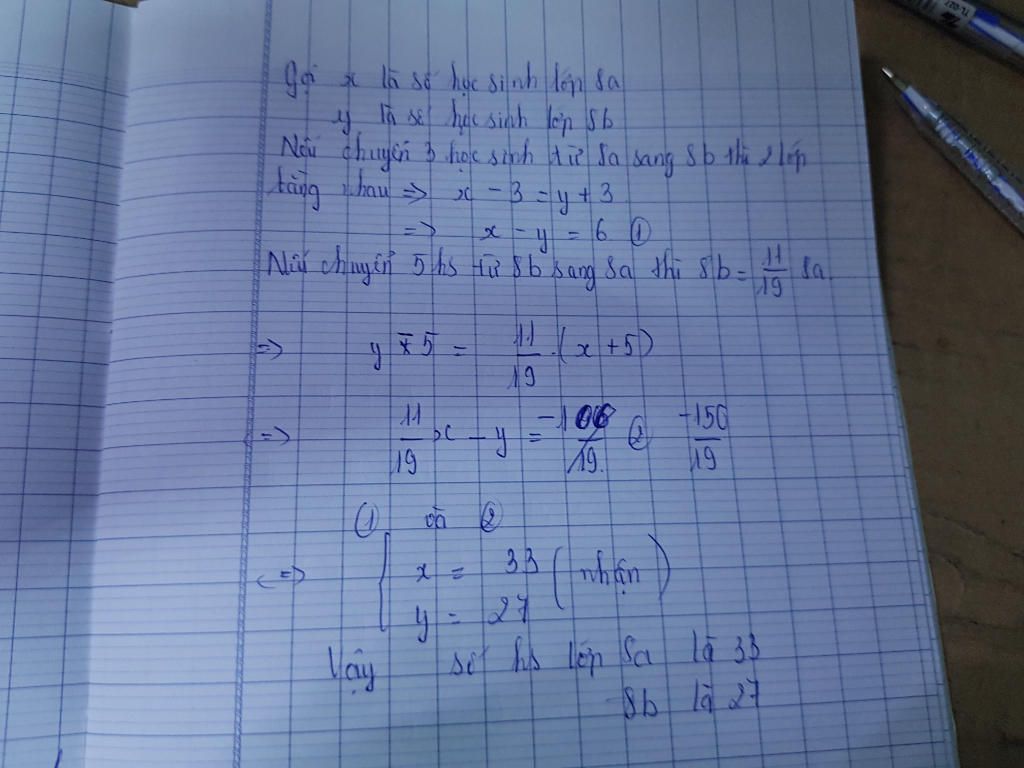 Gọi x là số học sinh lớp 8a
y là số học sinh lớp 8b
Nếu chuyển 3 học sinh từ 8a sang 8b thì 2 lớp
bằng nhau => x - 3 = y + 3
=> x - y = 6 ①
Nếu chuyển 5 hs từ 8b sang 8a thì 8b = 11/19 8a
=> y - 5 = 11/19 . (x + 5)
=> 11/19 x - y = -150/19 ②
① và ②
<=> { x = 33 (nhận)
y = 27
Vậy số hs lớp 8a là 33
8b là 27
TL-027